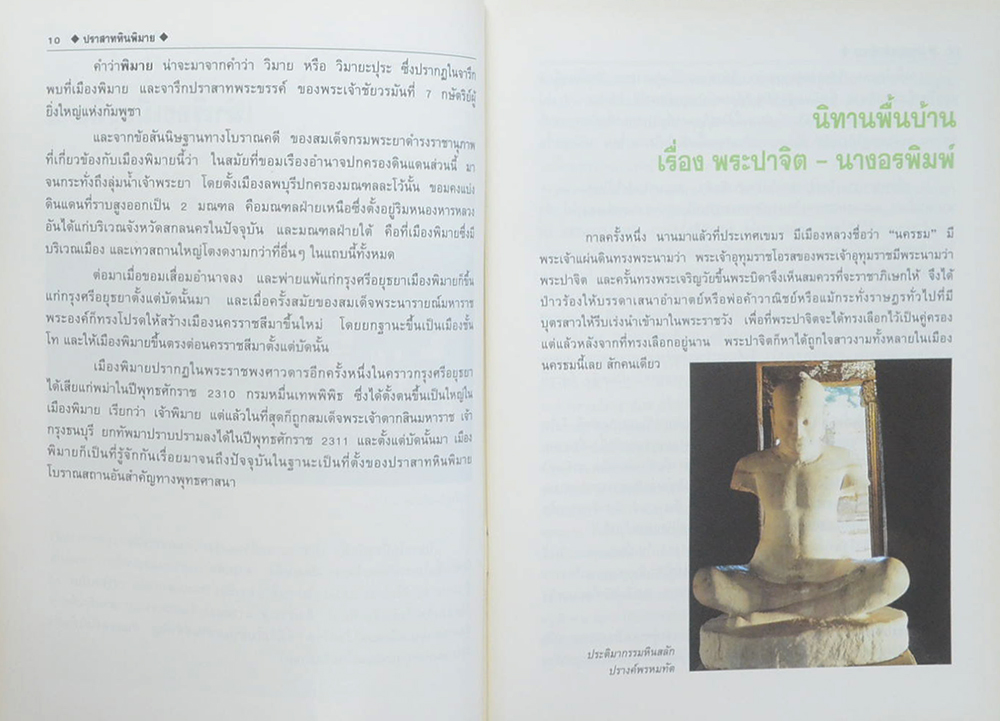 10 ◆ ปราสาทหินพิมาย ◆
คำว่าพิมาย น่าจะมาจากคำว่า วิมาย หรือ วิมายะปุระ ซึ่งปรากฏในจารึก
พบที่เมืองพิมาย และจารึกปราสาทพระขรรค์ ของพระเจ้าชัยวรมันที่ 7 กษัตริย์ผู้
ยิ่งใหญ่แห่งกัมพูชา
และจากข้อสันนิษฐานทางโบราณคดี ของสมเด็จกรมพระยาดำรงราชานุภาพ
ที่เกี่ยวข้องกับเมืองพิมายนี้ว่า ในสมัยที่ขอมเรืองอำนาจปกครองดินแดนส่วนนี้ มา
จนกระทั่งถึงลุ่มน้ำเจ้าพระยา โดยตั้งเมืองลพบุรีปกครองมณฑลละโว้นั้น ขอมคงแบ่ง
ดินแดนที่ราบสูงออกเป็น 2 มณฑล คือมณฑลฝ่ายเหนือซึ่งตั้งอยู่ริมหนองหารหลวง
อันได้แก่บริเวณจังหวัดสกลนครในปัจจุบัน และมณฑลฝ่ายใต้ คือที่เมืองพิมายซึ่งมี
บริเวณเมือง และเทวสถานใหญ่โตงดงามกว่าที่อื่นๆ ในแถบนี้ทั้งหมด
ต่อมาเมื่อขอมเสื่อมอำนาจลง และพ่ายแพ้แก่กรุงศรีอยุธยาเมืองพิมายก็ขึ้น
แก่กรุงศรีอยุธยาตั้งแต่บัดนั้นมา และเมื่อครั้งสมัยของสมเด็จพระนารายณ์มหาราช
พระองค์ก็ทรงโปรดให้สร้างเมืองนครราชสีมาขึ้นใหม่ โดยยกฐานะขึ้นเป็นเมืองชั้น
โท และให้เมืองพิมายขึ้นตรงต่อนครราชสีมาตั้งแต่บัดนั้น
เมืองพิมายปรากฏในพระราชพงศาวดารอีกครั้งหนึ่งในคราวกรุงศรีอยุธยา
ได้เสียแก่พม่าในปีพุทธศักราช 2310 กรมหมื่นเทพพิพิธ ซึ่งได้ตั้งตนขึ้นเป็นใหญ่ใน
เมืองพิมาย เรียกว่า เจ้าพิมาย แต่แล้วในที่สุดก็ถูกสมเด็จพระเจ้าตากสินมหาราช เจ้า
กรุงธนบุรี ยกทัพมาปราบปรามลงได้ในปีพุทธศักราช 2311 และตั้งแต่บัดนั้นมา เมือง
พิมายก็เป็นที่รู้จักกันเรื่อยมาจนถึงปัจจุบันในฐานะเป็นที่ตั้งของปราสาทหินพิมาย
โบราณสถานอันสำคัญทางพุทธศาสนา
นิทานพื้นบ้าน
เรื่อง พระปาจิต – นางอรพิมพ์
กาลครั้งหนึ่ง นานมาแล้วที่ประเทศเขมร มีเมืองหลวงชื่อว่า “นครธม” มี
พระเจ้าแผ่นดินทรงพระนามว่า พระเจ้าอุทุมราชโอรสของพระเจ้าอุทุมราชมีพระนามว่า
พระปาจิต และครั้นทรงพระเจริญวัยขึ้นพระบิดาจึงเห็นสมควรที่จะราชาภิเษกให้ จึงได้
ป่าวร้องให้บรรดาเสนาอำมาตย์หรือพ่อค้าวาณิชย์หรือแม้กระทั่งราษฎรทั่วไปที่มี
บุตรสาวให้รีบเร่งนำเข้ามาในพระราชวัง เพื่อที่พระปาจิตจะได้ทรงเลือกไว้เป็นคู่ครอง
แต่แล้วหลังจากที่ทรงเลือกอยู่นาน พระปาจิตก็หาได้ถูกใจสาวงามทั้งหลายในเมือง
นครธมนี้เลย สักคนเดียว
ประติมากรรมหินสลัก
ปรางค์พรหมทัต